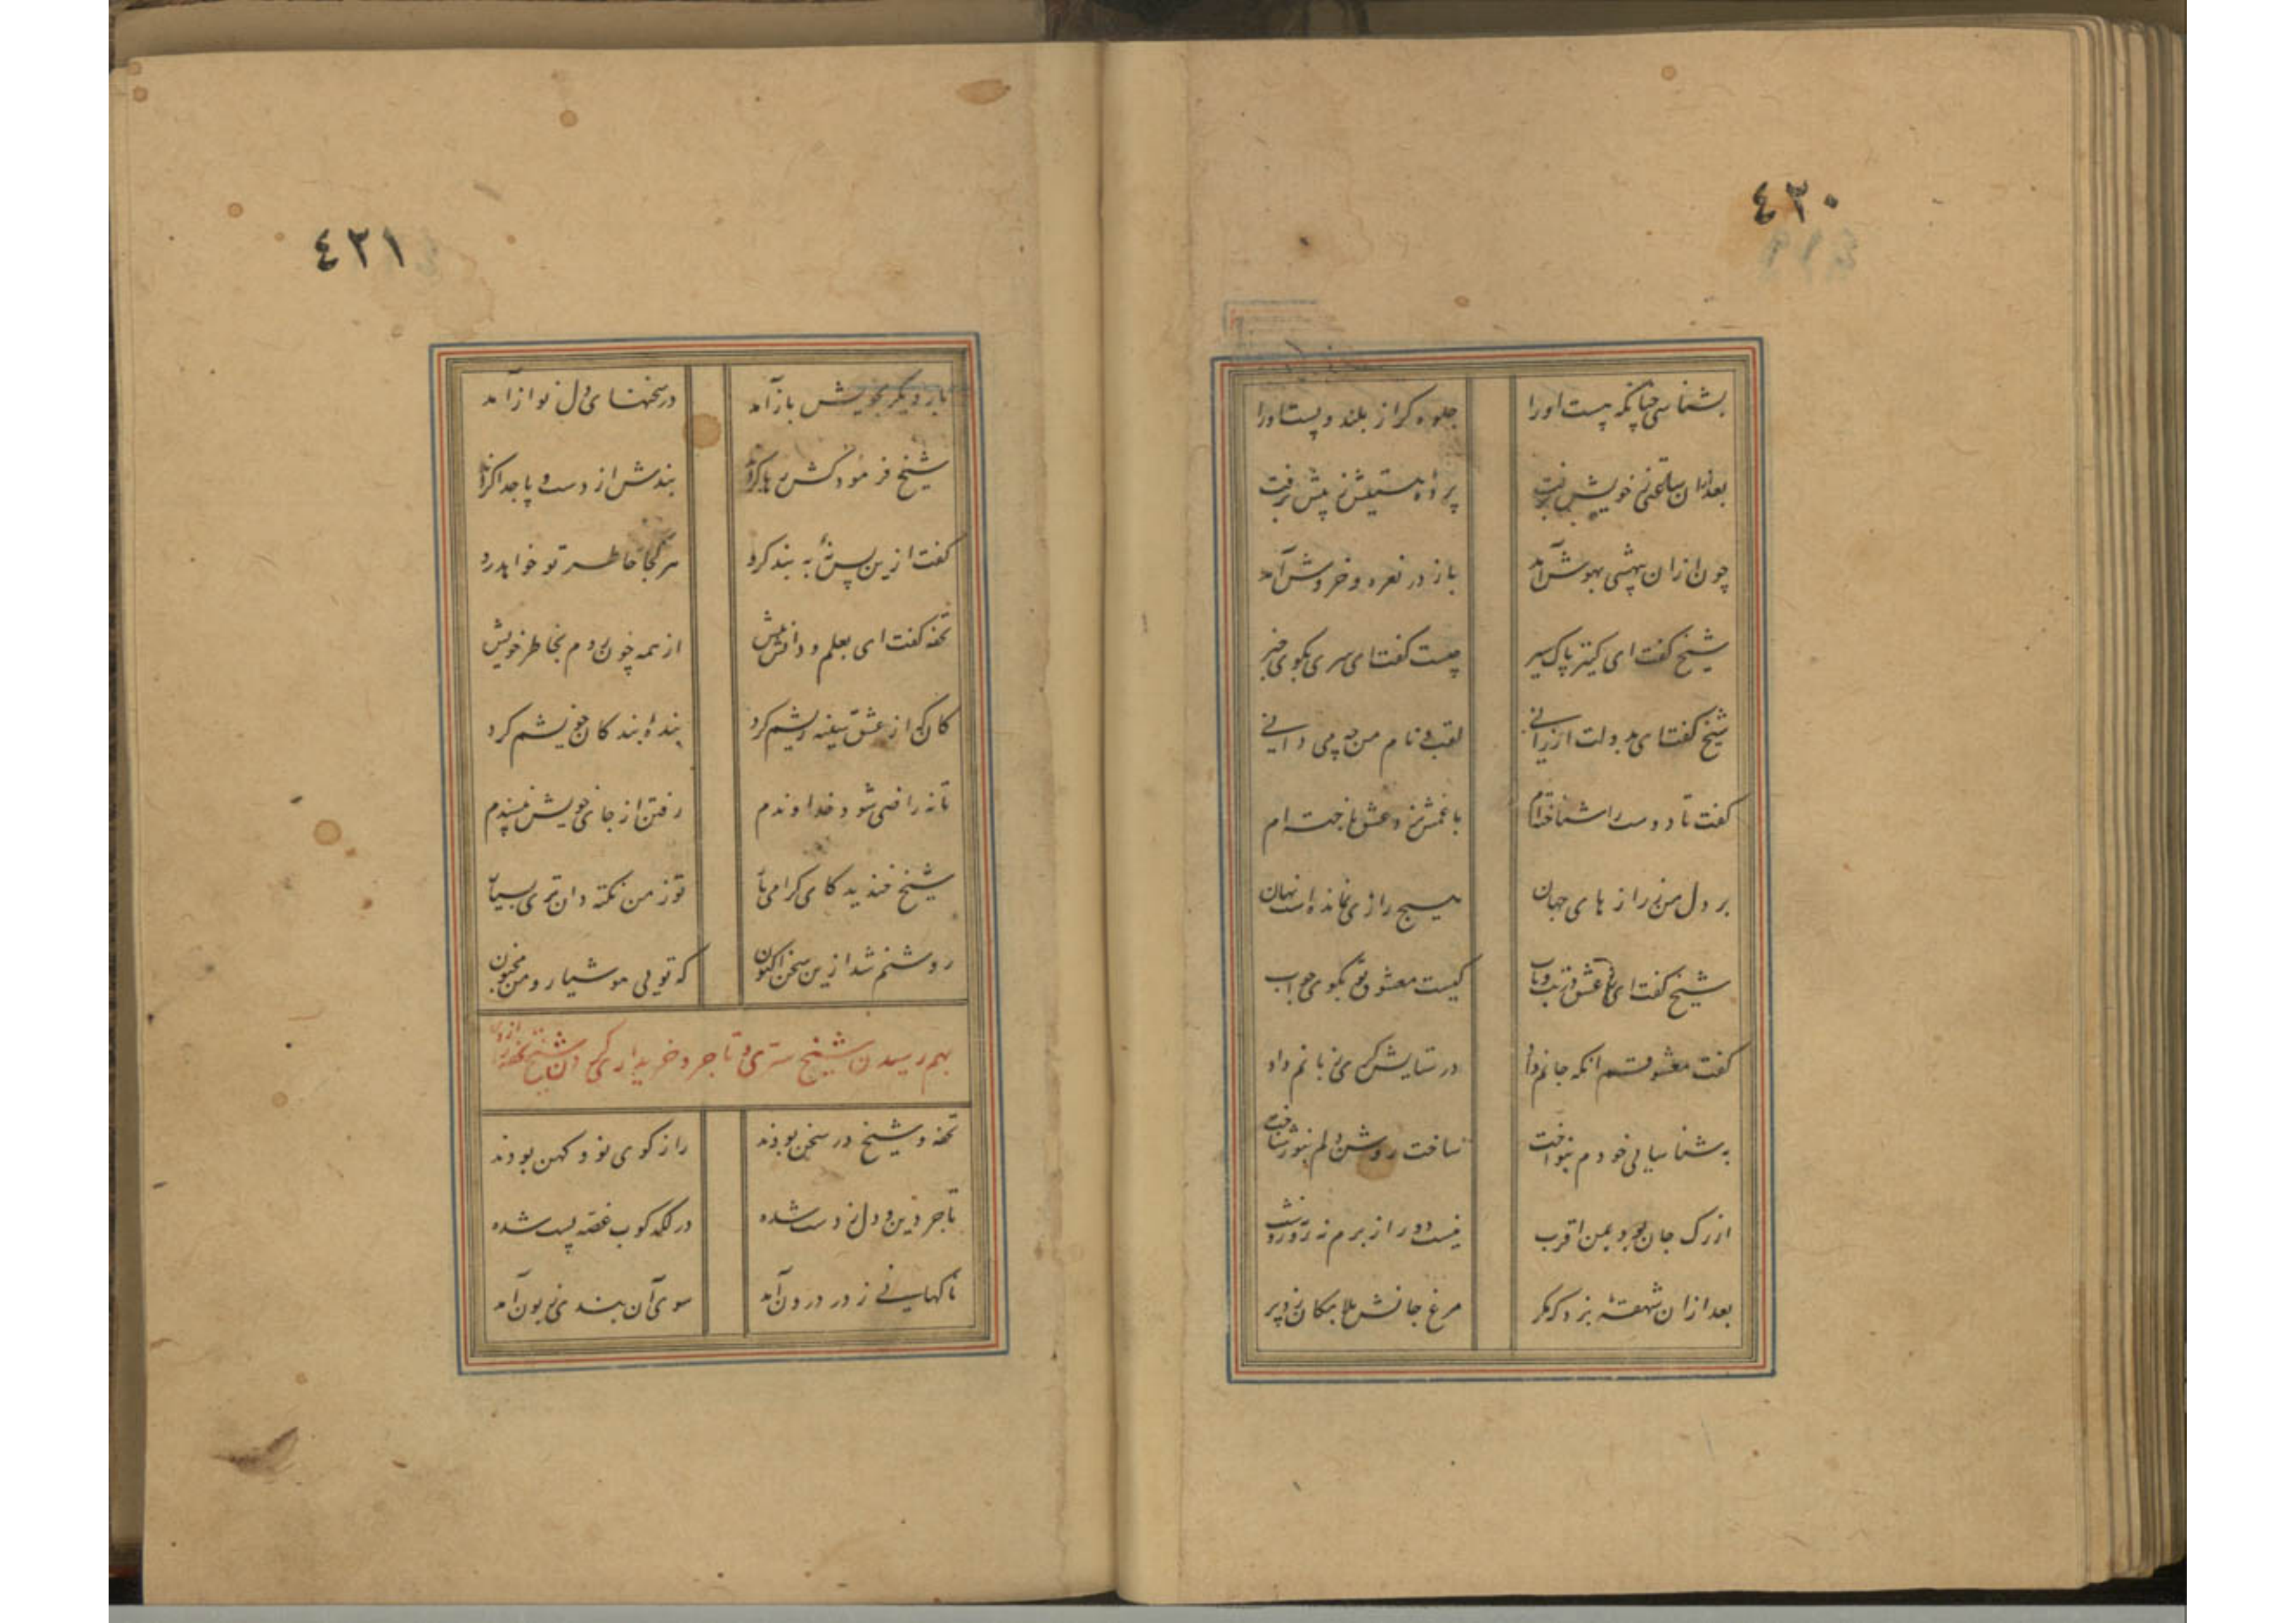 ٤٢٠
بشناسی چنانکه هست او را جلوه گر از بلند و پست او را
بعد ازان ساعتی ز خویش برفت پرده هستیش ز پیش برفت
چون ازان بیهشی بهوش آمد باز در نعره و خروش آمد
شیخ گفت ای کنیز پاک سیر چیست گفتا ای سری بگوی خبر
شیخ گفتا ی بدولت ارزانی لقب و نام من چه می دانی
گفت تا دوست را شناخته ام با غمش نرد عشق باخته ام
بر دل من ز رازهای جهان هیچ رازی نمانده است نهان
شیخ گفت ای ز عشق در تب و تاب کیست معشوق تو بگوی جواب
گفت معشوقم انکه جانم داد در ستایش گری زبانم داد
به شناسایی خودم بنواخت ساخت روشن دلم بنور شناخت
از رگ جان بود بمن اقرب نیست دور از برم نه روز و نه شب
بعد ازان شهقهٔ بزد که مگر مرغ جانش بلامکان زد پر
٤٢١
بار دیگر بخویش باز آمد در سخنهای دل نواز آمد
شیخ فرمود کش رها کردند بندش از دست و پا جدا کردند
گفت ازین پس نهٔ به بند گرو هر کجا خاطر تو خواهد رو
تحفه گفت ای بعلم و دانش بیش از همه چون روم بخاطر خویش
کان که از عشق سینه ریشم کرد بندهٔ بندگان خویشم کرد
تا نه راضی شود خداوندم رفتن از جای خویش نپسندم
شیخ خندید کای گرامی یار تو ز من نکته دان تری بسیار
روشنم شد ازین سخن اکنون که تویی هوشیار و من مجنون
بهم رسیدن شیخ سری و تاجر و خریداری کردن شیخ تحفه را از وی
تحفه و شیخ در سخن بودند راز گوی نو و کهن بودند
تاجر دین و دل ز دست شده در لکد کوب غصه پست شده
ناگهانی ز در درون آمد سوی آن بندی زبون آمد